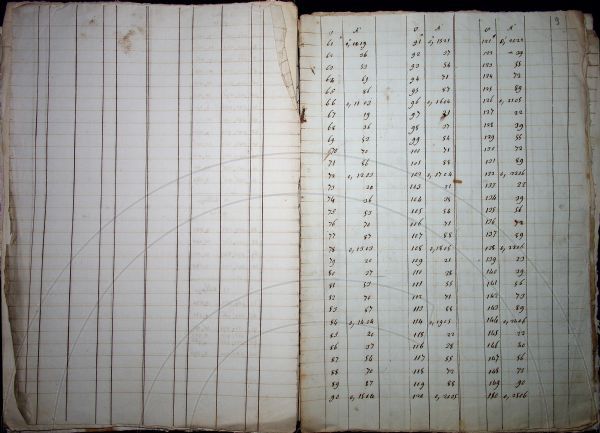 9
61 0,1019 91 0,1521 121 0,2022
62 36 92 37 122 39
63 53 93 54 123 55
64 69 94 71 124 72
65 86 95 87 125 89
66 0,1103 96 0,1604 126 0,2105
67 19 97 21 127 22
68 36 98 37 128 39
69 53 99 54 129 55
70 70 100 71 130 72
71 86 101 88 131 89
72 0,1203 102 0,1704 132 0,2206
73 20 103 21 133 22
74 36 104 38 134 39
75 53 105 54 135 56
76 70 106 71 136 72
77 87 107 88 137 89
78 0,1303 108 0,1805 138 0,2306
79 20 109 21 139 23
80 37 110 38 140 39
81 53 111 55 141 56
82 70 112 71 142 73
83 87 113 88 143 89
84 0,1404 114 0,1905 144 0,2406
85 20 115 22 145 23
86 37 116 38 146 40
87 54 117 55 147 56
88 70 118 72 148 73
89 87 119 88 149 90
90 0,1504 120 0,2005 150 0,2506